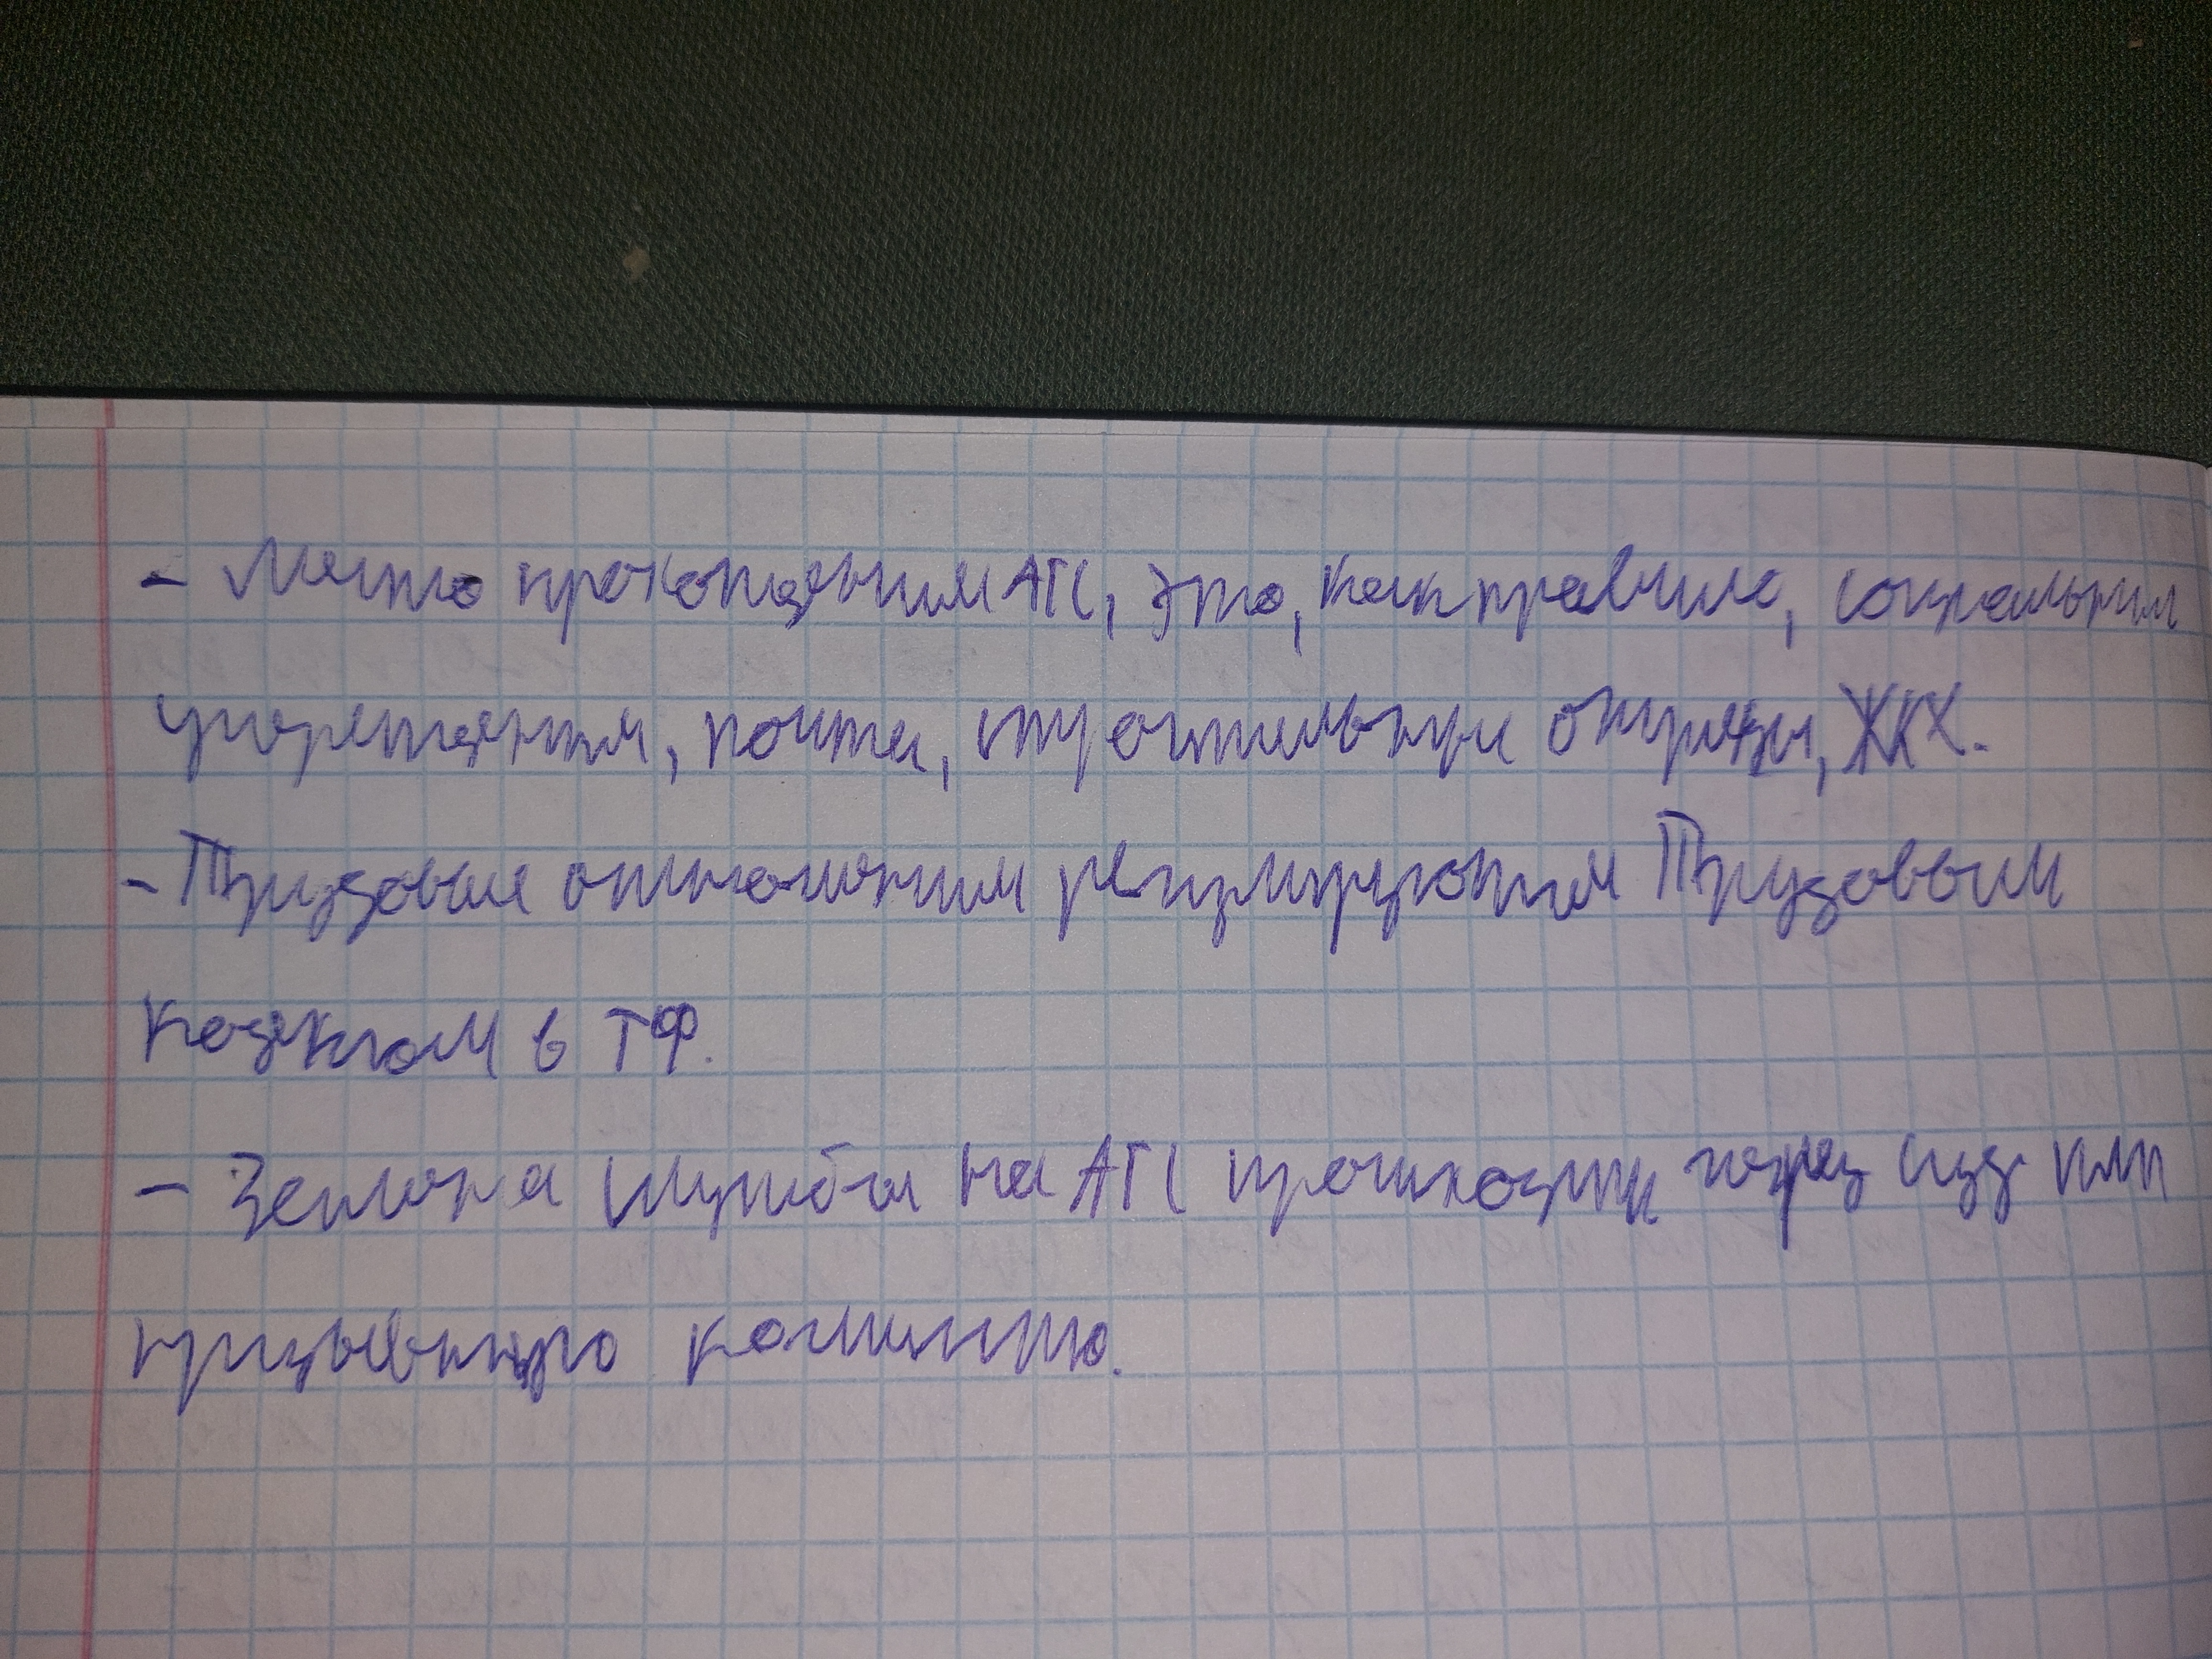 - Место прохождения АГС, это, как правило, социальные
учреждения, почта, строительные отряды, ЖКХ.
- Трудовые отношения регулируются Трудовым
кодексом в ТФ.
- Замена службы на АГС происходит через суд или
призывную комиссию.